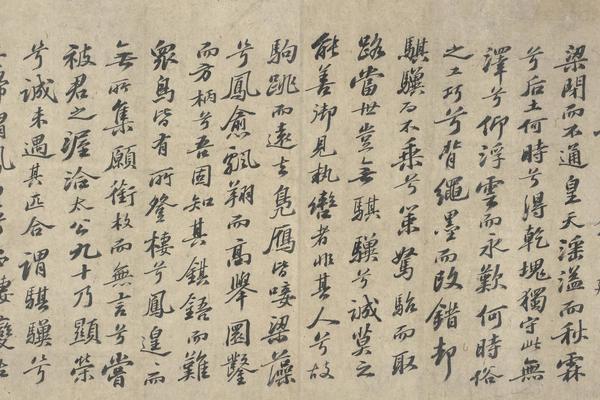 梁閉而不通皇天淫溢而秋霖
兮后土何時兮得乾塊獨守此無
澤兮仰浮雲而永歎何時俗
之工巧兮背繩墨而改錯却
騏驥而不乘兮策駑駘而取
路當世豈無騏驥兮誠莫之
能善御見執轡者非其人兮故
駒跳而遠去鳧鴈皆唼梁藻
兮鳳愈飄翔而高舉圜鑿
而方柄兮吾固知其鉏鋙而難
衆鳥皆有所登棲兮鳳遑〻而
無所集願銜枚而無言兮嘗
被君之渥洽太公九十乃顯榮
兮誠未遇其匹合謂騏驥兮
歸謂鳳皇兮安棲變古